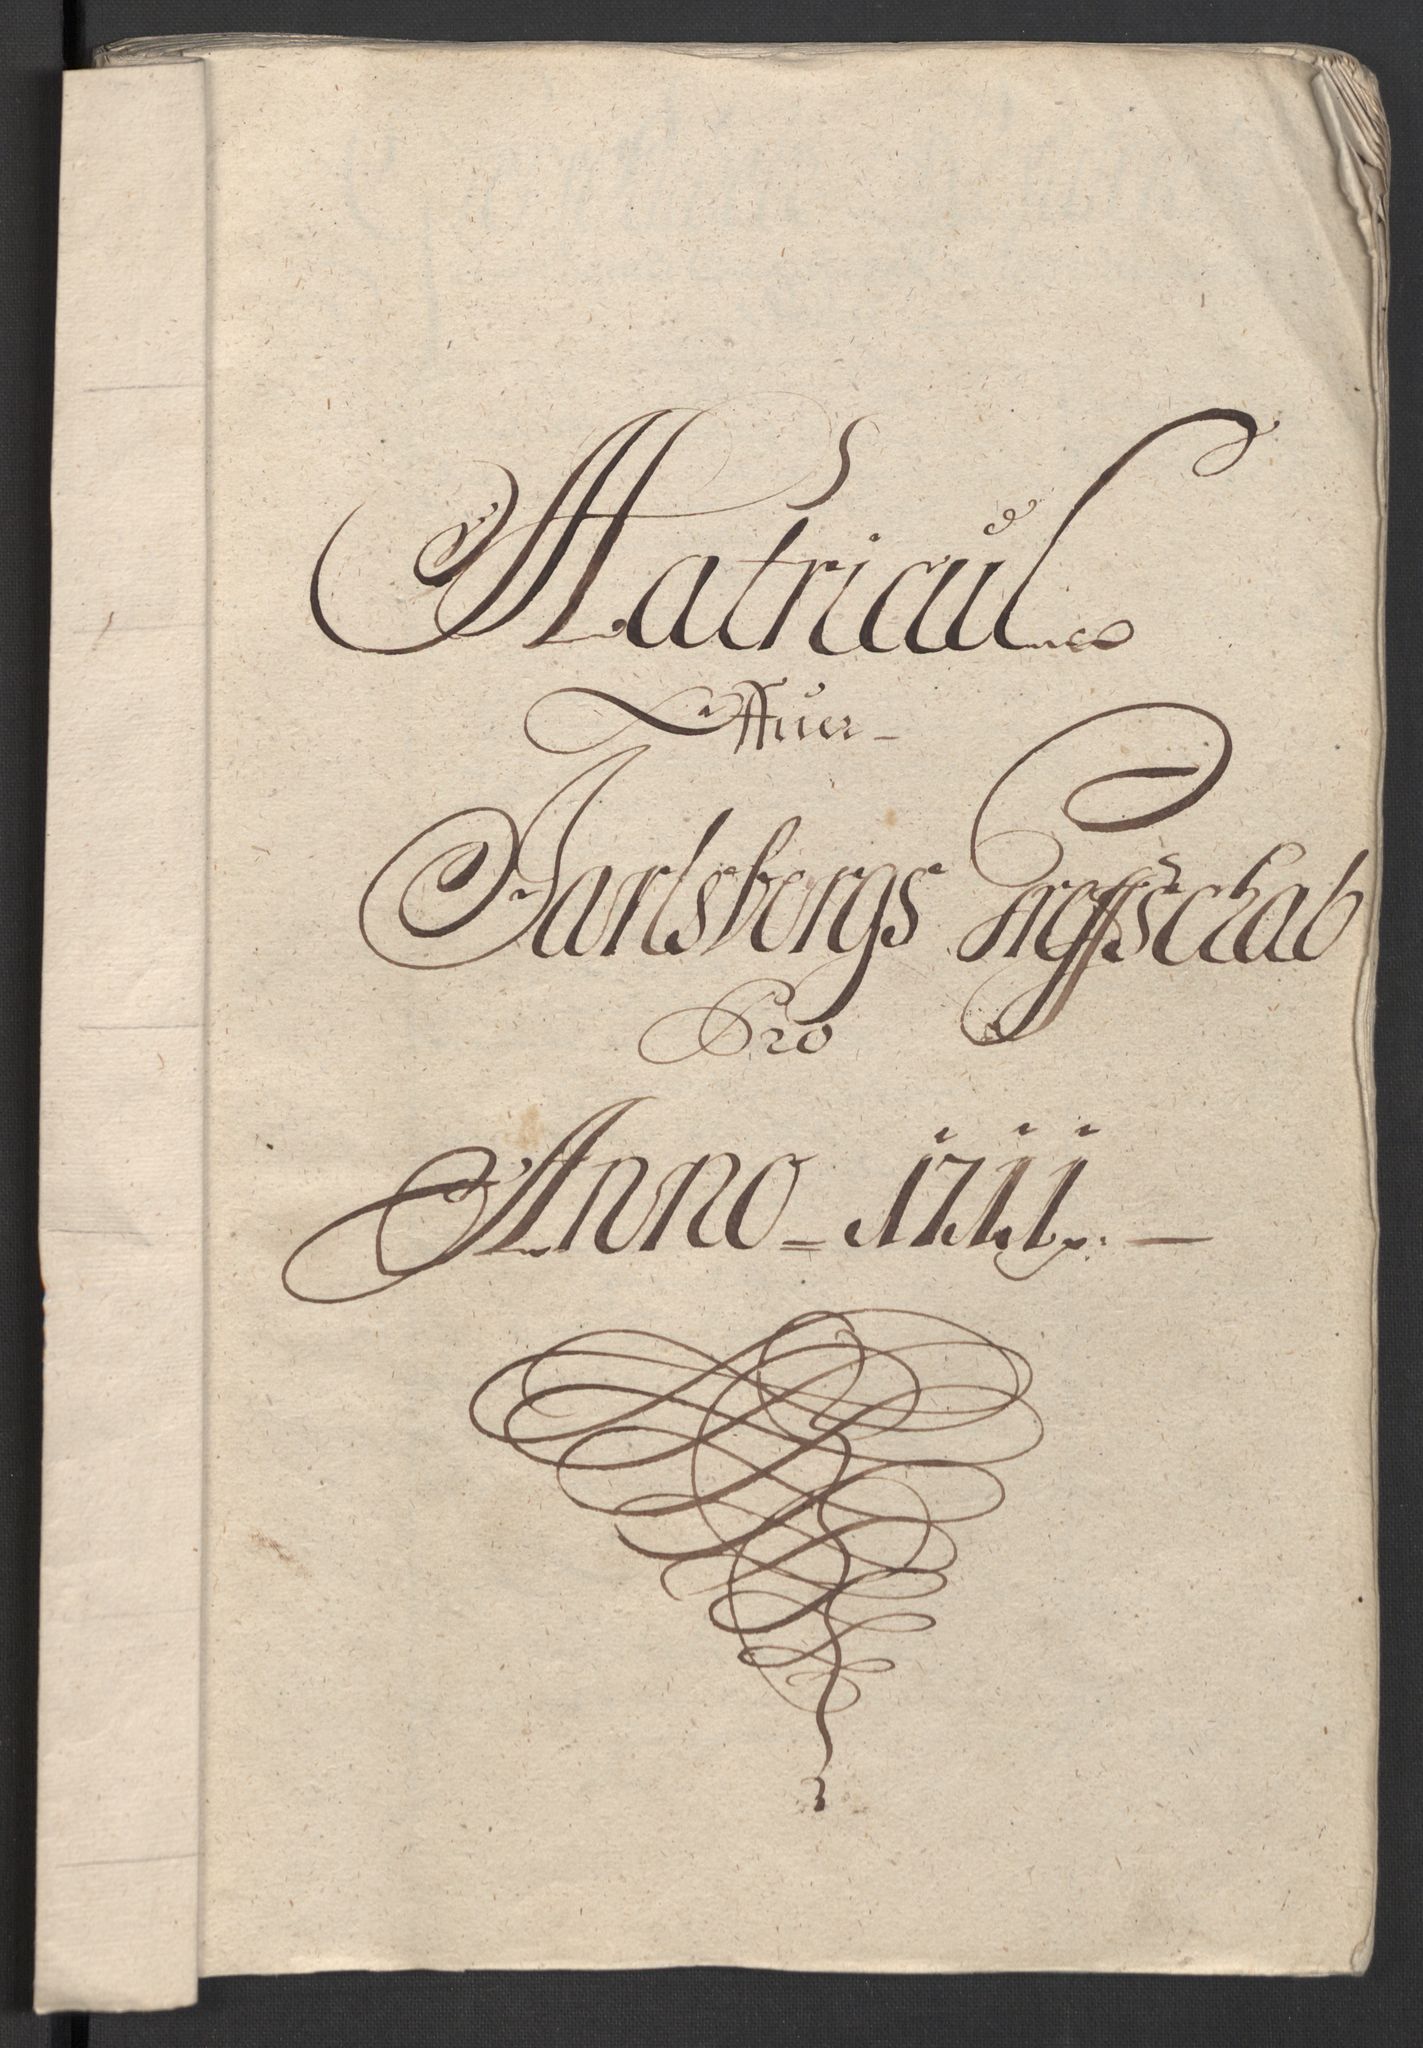 Matricul
Offuer
Jarlsbergs Greffschab
Pro
Anno = 1711